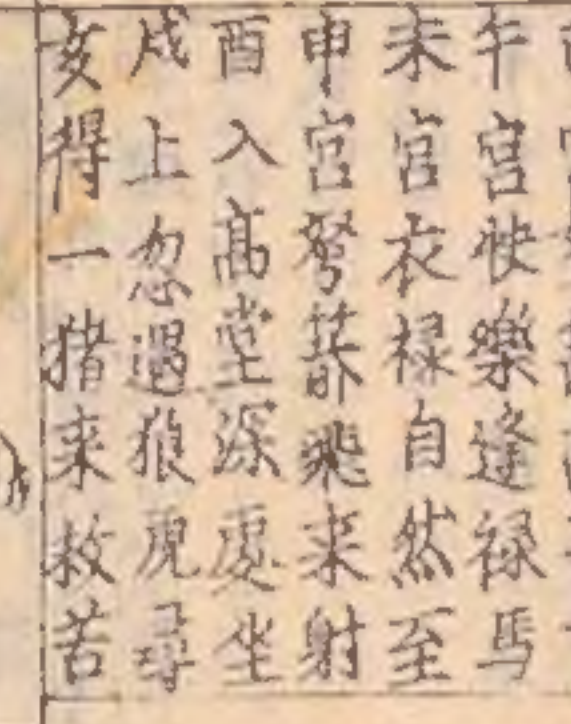 午宮快樂逢禄馬
未宮衣禄自然至
申宮弩箭飛来射
酉入髙堂深處坐
戍上忽遇狼虎尋
亥得一猪来救苦